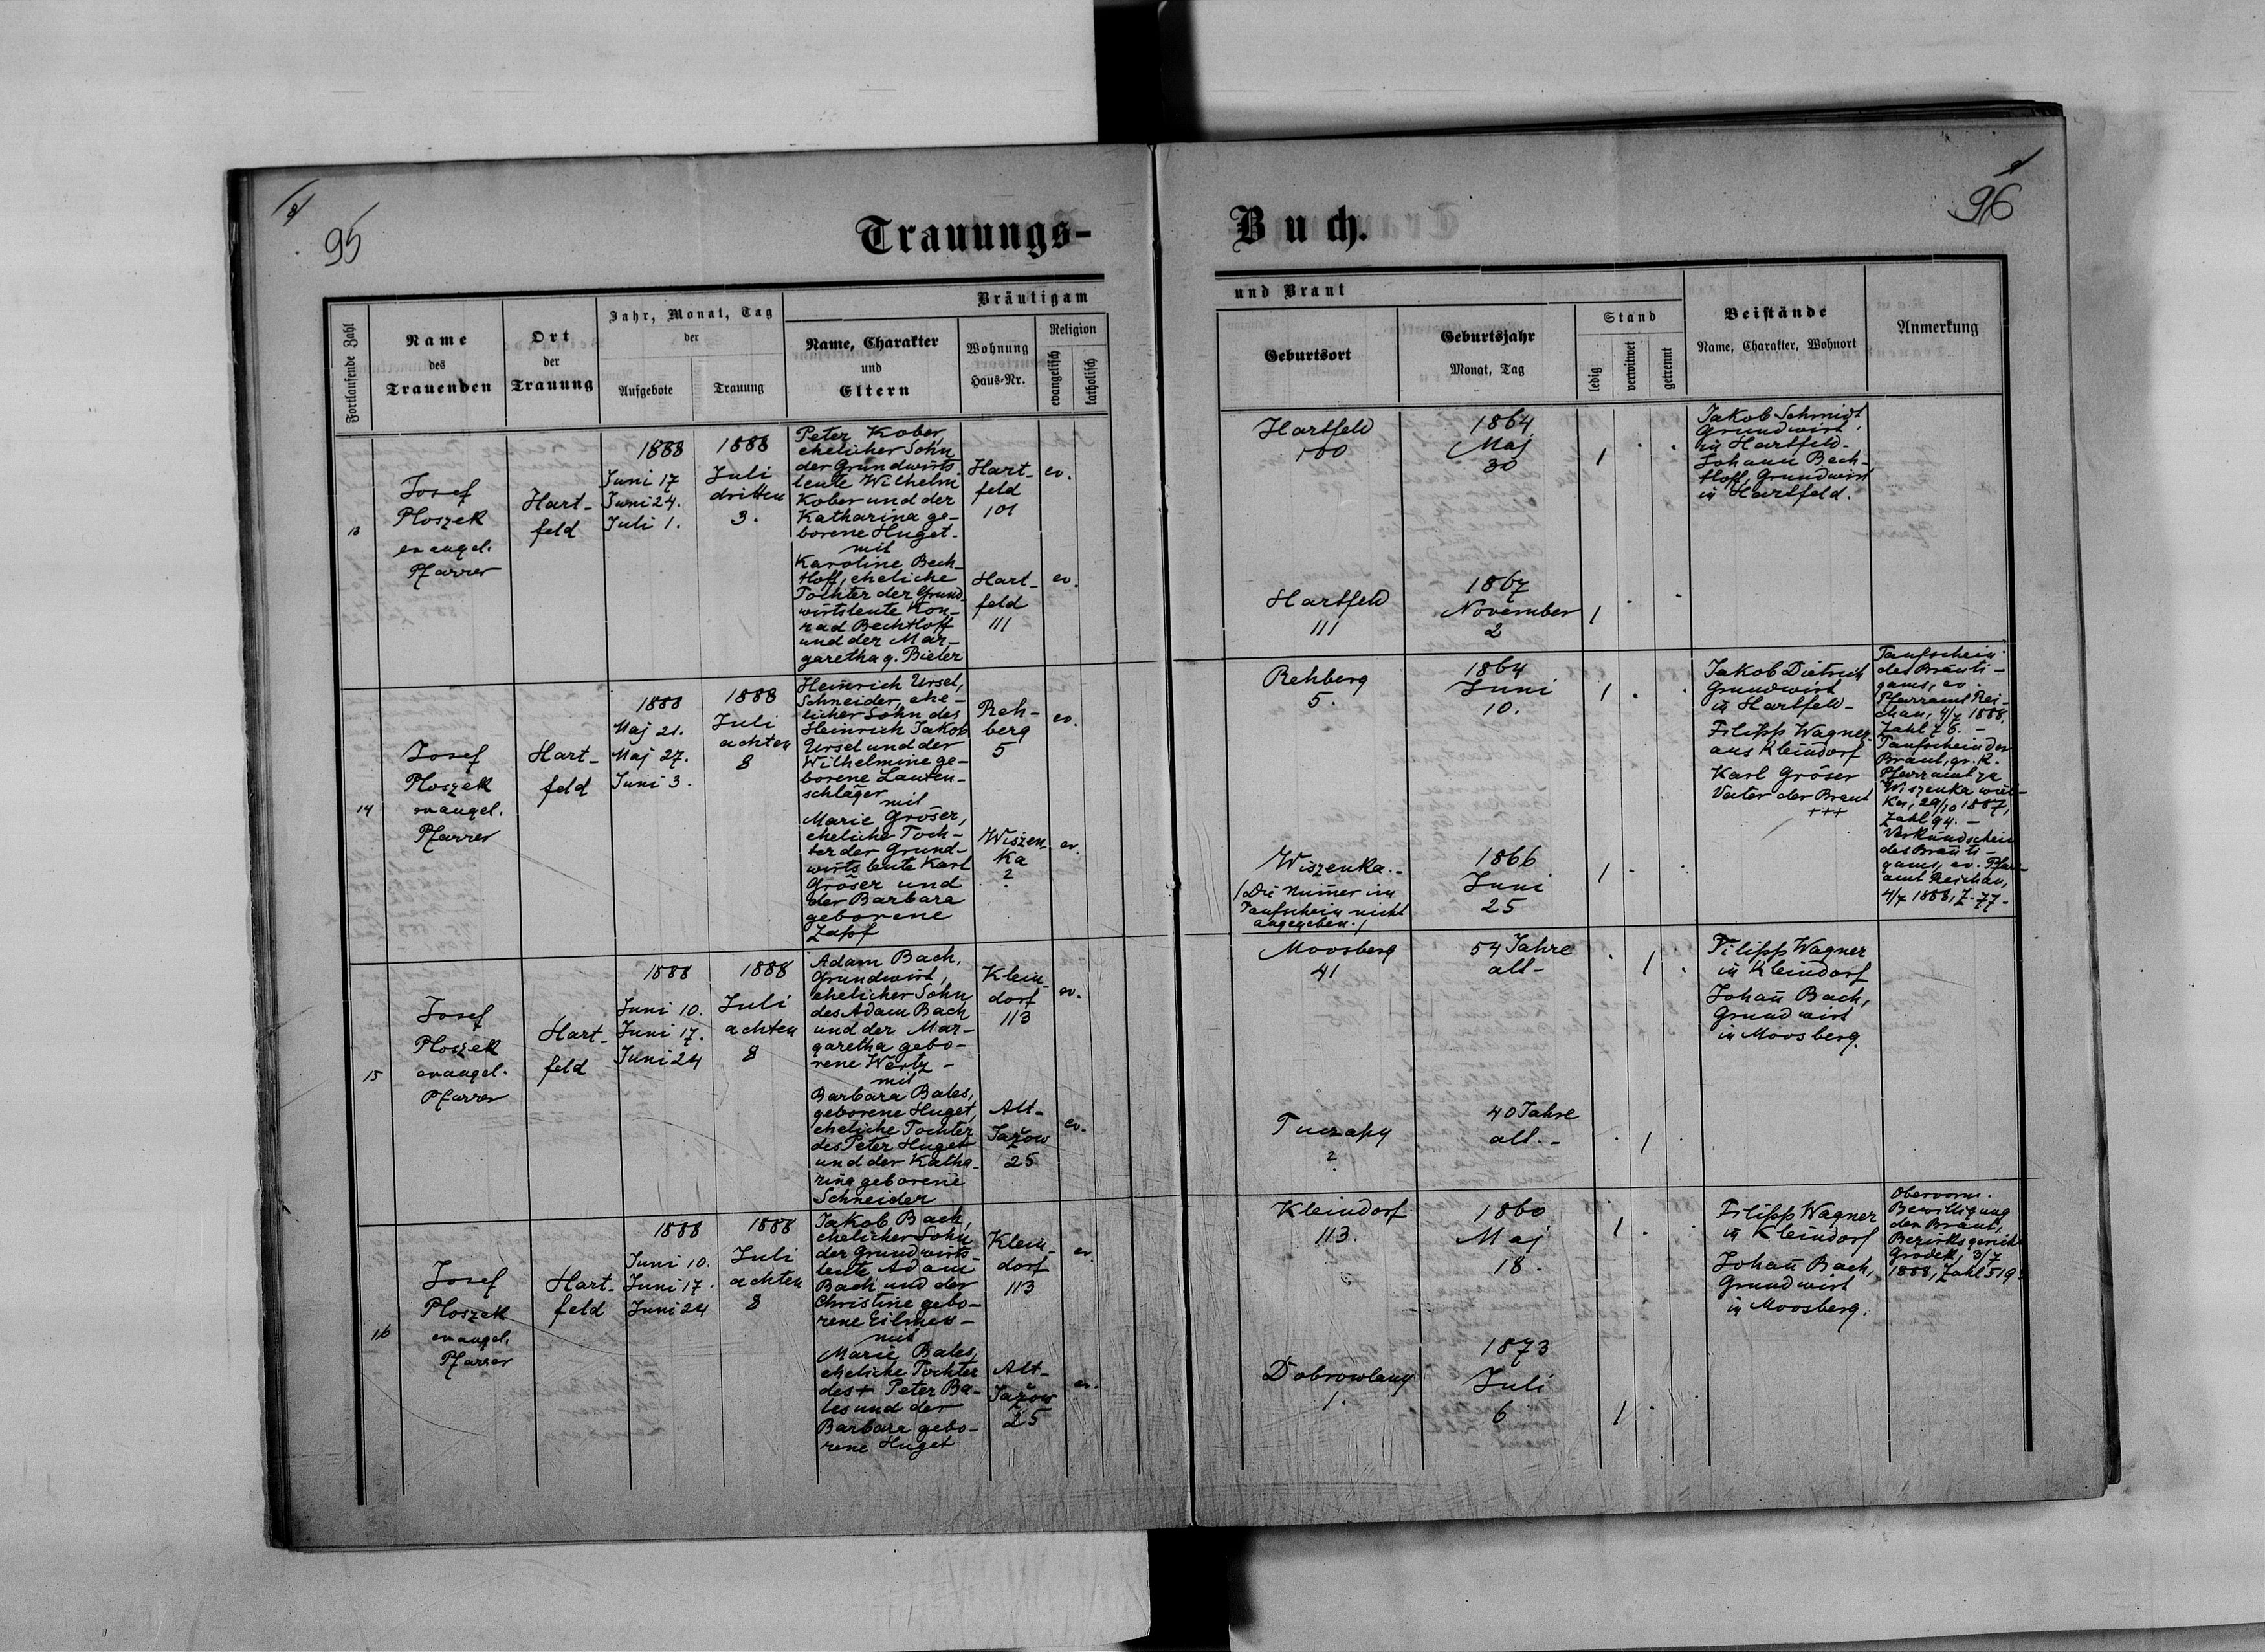 95
96
Trauungs-
Buch.
Fortlaufende Zahl
Name
des
Trauenden
Ort
der
Trauung
Jahr, Monat, Tag
der
Aufgebote
Trauung
Bräutigam
Name, Charakter
und
Eltern
Wohnung
Haus-Nr.
Religion
evangelisch
katholisch
und Braut
Geburtsort
Geburtsjahr
Monat, Tag
Stand
ledig
verwitwet
getrennt
Beistände
Name, Charakter, Wohnort
Anmerkung
13
Josef
Ploszek
evangel.
Pfarrer
Hart-
feld
1888
Juni 17
Juni 24.
Juli 1.
1888
Juli
dritten
3.
Peter Kober,
ehelicher Sohn
der Grundwirts-
leute Wilhelm
Kober und der
Katharina ge-
borene Huget-
mit
Karoline Bech-
thoff, eheliche
Tochter der Grund-
wirtsleute Kon-
rad Bechthoff
und der Mar-
garetha g. Bieler
Hart-
feld
101
ev.
Hart-
feld
111
ev.
Hartfeld
100
1864
Maj
30
1
Hartfeld
111
1867
November
2
1
Jakob Schmidt
Grundwirt
in Hartfeld-
Johann Bech-
thoff, Grundwirt
in Hartfeld.
14
Josef
Ploszek
evangel.
Pfarrer
Hart-
feld
1888
Maj 21.
Maj 27.
Juni 3.
1888
Juli
achten
8
Heinrich Ursel,
Schneider, ehe-
licher Sohn des
Heinrich Jakob
Ursel und der
Wilhelmine ge-
borene Lauten-
schläger
mit
Marie Gröser,
eheliche Toch-
ter der Grund-
wirtsleute Karl
Gröser und
der Barbara
geborene
Zapf
Reh-
berg
5
ev.
Wiszen-
ka
?
ev.
Rehberg
5.
1864
Juni
10.
1
Wiszenka.-
(Die Numer im
Taufschein nicht
angegeben.)
1866
Juni
25
1
Jakob Dietrich
Grundwirt
in Hartfeld-
Filipp Wagner
aus Kleindorf
Karl Gröser
Vater der Braut
+++
Taufschein
des Bräuti-
gams, ev.
Pfarramt Rei-
chau, 4/7 1888,
Zahl 76.-
Taufschein der
Braut, gr. k.
Pfarramt zu
Wiszenka wiel-
ka, 29/10 1887,
Zahl 94.-
Verkündschein
des Bräuti-
gams, ev. Pfarr-
amt Reichau,
4/7 1888, Z. 77-
15
Josef
Ploszek
evangel.
Pfarrer
Hart-
feld
1888
Juni 10.
Juni 17.
Juni 24
1888
Juli
achten
8
Adam Bach,
Grundwirt,
ehelicher Sohn
des Adam Bach
und der Mar-
garetha gebo-
rene Wertz-
mit
Barbara Bales,
geborene Huget,
eheliche Tochter
des Peter Huget
und der Katha-
rina geborene
Schneider
Klein-
dorf
113
ev.
Alt-
Jažow
25
ev.
Moosberg
41
54 Jahre
alt-
1
Tuczapy
?
40 Jahre
alt.-
1
Filipp Wagner
in Kleindorf
Johan̄ Bach,
Grundwirt
in Moosberg.
16
Josef
Ploszek
evangel.
Pfarrer
Hart-
feld
1888
Juni 10.
Juni 17.
Juni 24
1888
Juli
achten
8
Jakob Bach,
ehelicher Sohn
der Grundwirts-
leute Adam
Bach und der
Christine gebo-
rene Eilmes-
mit
Marie Bales,
eheliche Tochter
des + Peter Ba-
les und der
Barbara gebo-
rene Huget
Klein-
dorf
113
ev.
Alt-
Jažow
25
ev.
Kleindorf
113.
1860
Maj
18.
1
Dobrowlany
1.
1873
Juli
6
1
Filipp Wagner
in Kleindorf
Johan̄ Bach,
Grundwirt
in Moosberg.
Obervorm.
Bewilligung
der Braut,
Bezirksgericht
Grodek, 3/7
1888, Zahl 519.